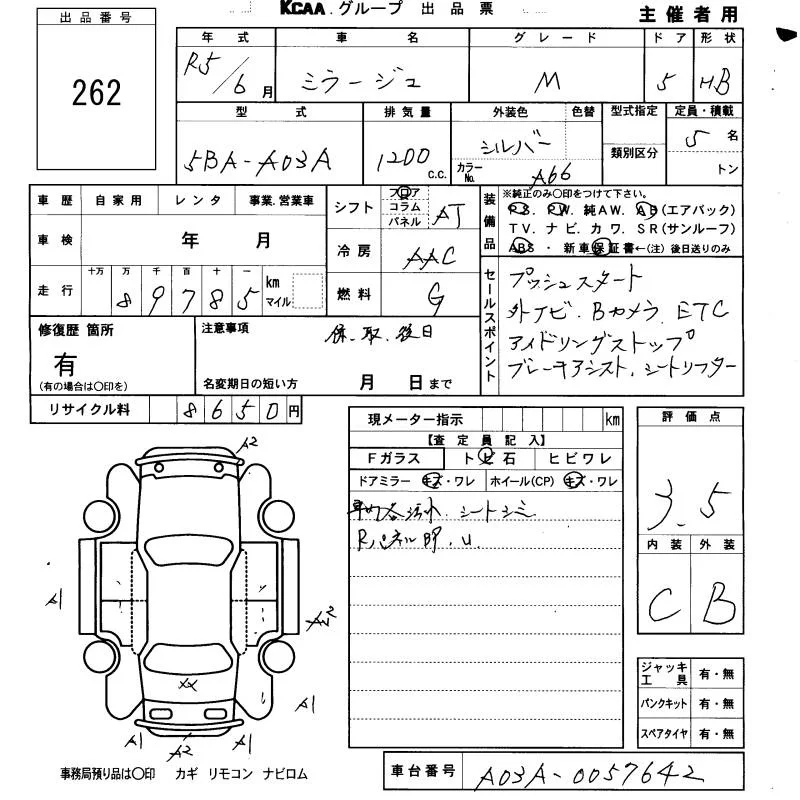 KCAA.グループ 出品票
主催者用
出品番号
262
年式 車名 グレード ドア 形状
R5/6月 ミラージュ M 5 HB
型式 排気量 外装色 色替 型式指定 定員・積載
5BA-A03A 1200 C.C. シルバー 5名
カラーNo. A66 類別区分 トン
車歴 自家用 レンタ 事業.営業車
車検 年 月
走行 十万 万 千 百 十 一
89785 km マイル
シフト フロア コラム パネル AT
冷房 AAC
燃料 G
装備品
※純正のみ○印をつけて下さい。
PS. PW. 純AW. AB(エアバック)
TV. ナビ. カワ. SR(サンルーフ)
ABS・新車保証書←(注)後日送りのみ
セールスポイント
プッシュスタート
外ナビ. Bカメラ. ETC
アイドリングストップ
ブレーキアシスト. シートリフター
修復歴 箇所
有
(有の場合は○印を)
注意事項
保.取.後日
名変期日の短い方 月 日まで
リサイクル料 8650円
現メーター指示 km
【査定員記入】
Fガラス トビ石 ヒビワレ
ドアミラー キズ・ワレ ホイール(CP) キズ・ワレ
シートシミ
評価点
3.5
内装 外装
C B
ジャッキ工具 有・無
パンクキット 有・無
スペアタイヤ 有・無
A2
A1
A1
A1
A1
A2
XX
事務局預り品は○印 カギ リモコン ナビロム
車台番号 A03A-0057642